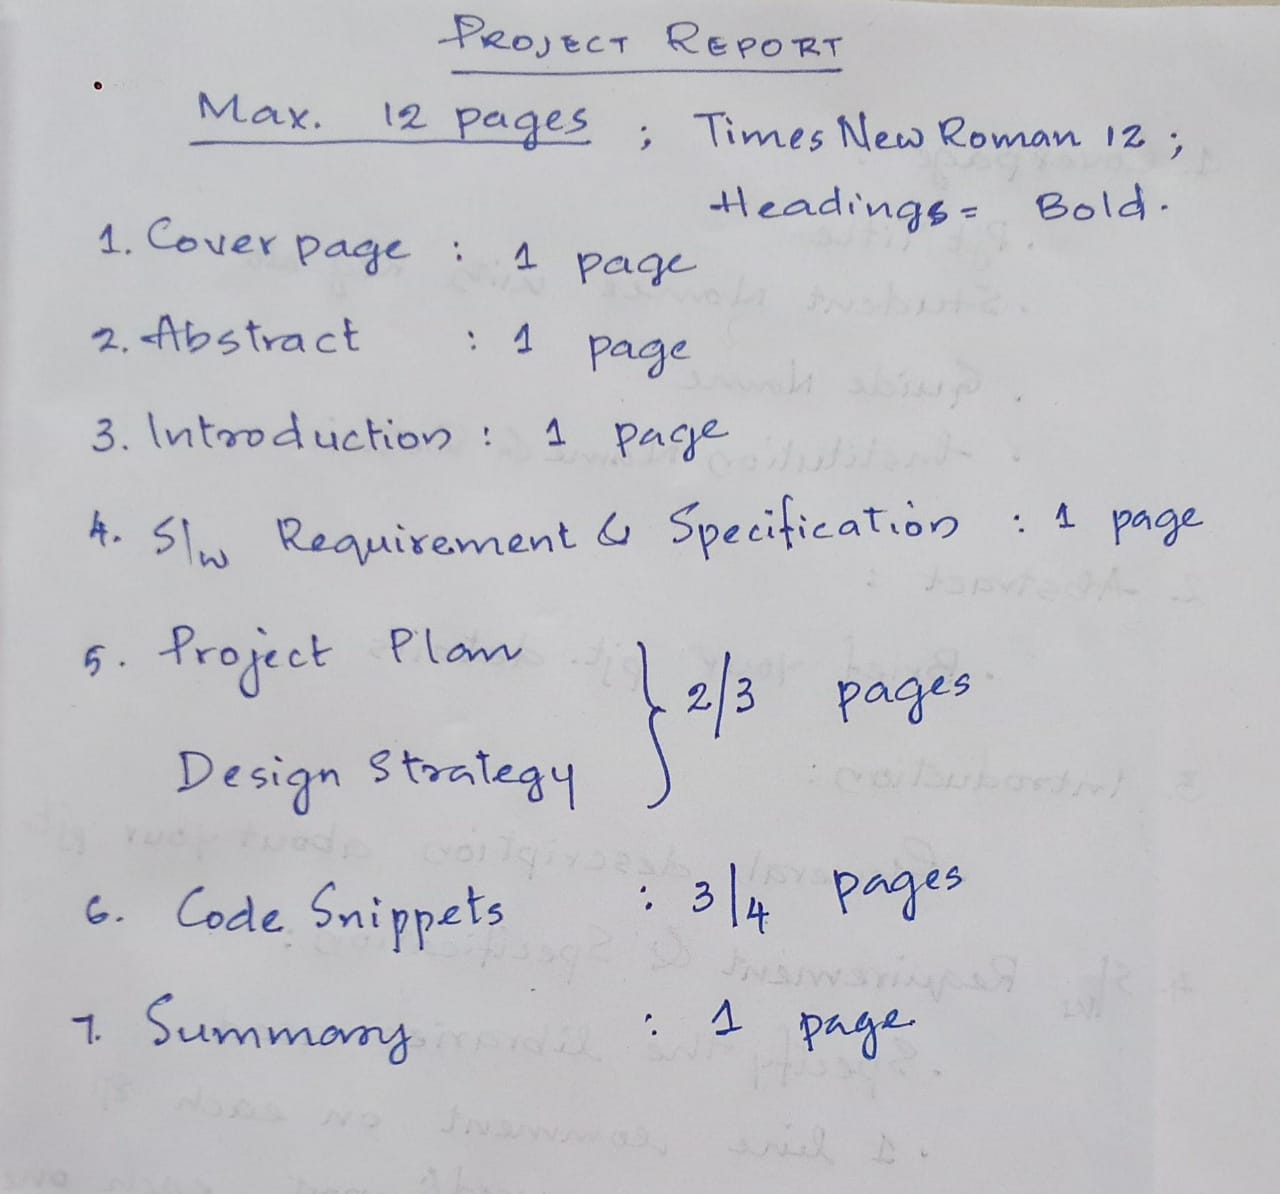 PROJECT REPORT
Max. 12 pages ; Times New Roman 12 ;
Headings = Bold.
1. Cover page : 1 page
2. Abstract : 1 page
3. Introduction : 1 page
4. S/w Requirement & Specification : 1 page
5. Project Plan
Design Strategy } 2/3 pages
6. Code Snippets : 3/4 pages
7. Summary : 1 page